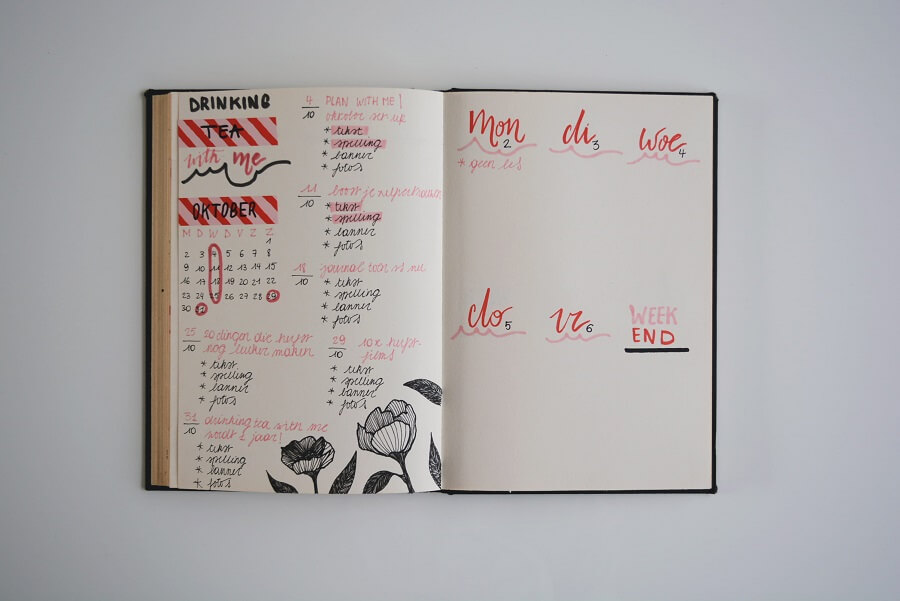 DRINKING
TEA
with me
OKTOBER
M D W D V Z Z
1
2 3 4 5 6 7 8
9 10 11 12 13 14 15
16 17 18 19 20 21 22
23 24 25 26 27 28 29
30 31
4/10 PLAN WITH ME!
oktober set up
* tekst
* spelling
* banner
* foto's
11/10 boost je zelfvertrouwen
* tekst
* spelling
* banner
* foto's
18/10 journal toen vs nu
* tekst
* spelling
* banner
* foto's
25/10 20 dingen die herfst
nog leuker maken
* tekst
* spelling
* banner
* foto's
29/10 10x herfst-
films
* tekst
* spelling
* banner
* foto's
31/10 drinking tea with me
wordt 1 jaar!
* tekst
* spelling
* banner
* foto's
Mon 2
* geen les
di 3
woe 4
do 5
vr 6
WEEK
END